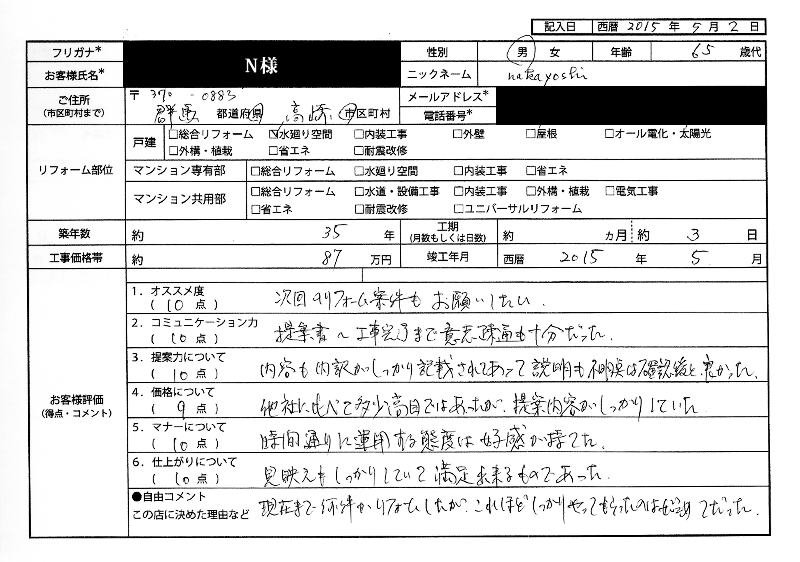 記入日 西暦 2015 年 5 月 2 日
フリガナ* N様 性別 男 女 年齢 65 歳代
お客様氏名* ニックネーム nakayoshi
ご住所 (市区町村まで) 〒 370-0883 メールアドレス*
群馬 都道府県 高崎 市区町村 電話番号*
リフォーム部位
戸建 □総合リフォーム ☑水廻り空間 □内装工事 □外壁 □屋根 □オール電化・太陽光
□外構・植栽 □省エネ □耐震改修
マンション専有部 □総合リフォーム □水廻り空間 □内装工事 □省エネ
マンション共用部 □総合リフォーム □水道・設備工事 □内装工事 □外構・植栽 □電気工事
□省エネ □耐震改修 □ユニバーサルリフォーム
築年数 約 35 年 工期 (月数もしくは日数) 約 カ月 約 3 日
工事価格帯 約 87 万円 竣工年月 西暦 2015 年 5 月
お客様評価 (得点・コメント)
1. オススメ度 (10 点) 次回のリフォーム案件もお願いしたい.
2. コミュニケーション力 (10 点) 提案書〜工事完了まで意志疎通も十分だった.
3. 提案力について (10 点) 内容も内訳がしっかり記載されてあって説明も不明点は確認後と良かった.
4. 価格について (9 点) 他社に比べて多少高目ではあったが、提案内容がしっかりしていた
5. マナーについて (10 点) 時間通りに運用する態度は好感が持てた.
6. 仕上がりについて (10 点) 見映えもしっかりしていて満足出来るものであった.
●自由コメント
この店に決めた理由など 現在まで何件かリフォームしたが、これほどしっかりやってもらったのははじめてだった.